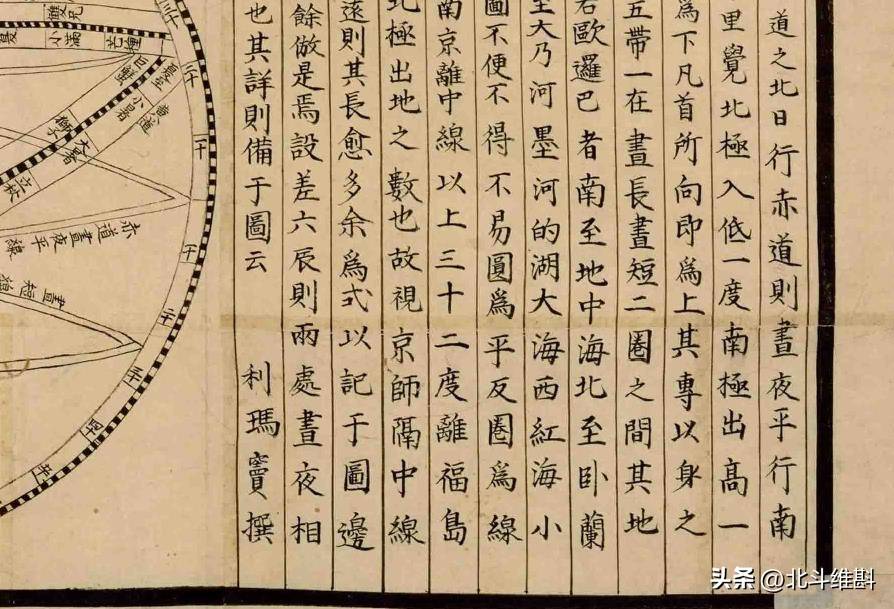 道之北日行赤道則晝夜平行南
里覺北極入低一度南極出高一
爲下凡首所向即爲上其專以身之
五帶一在晝長晝短二圈之間其地
若歐邏巴者南至地中海北至卧蘭
至大乃河墨河的湖大海西紅海小
圖不便不得不易圓爲平反圈爲線
南京離中線以上三十二度離福島
北極出地之數也故視京師隔中線
遠則其長愈多余爲式以記于圖邊
餘倣是焉設差六辰則兩處晝夜相
也其詳則備于圖云 利瑪竇撰
雙兄
小滿
芒種
巨蟹
小暑
黃道
大暑
立秋
赤道晝夜平線
晝短
头条 @北斗维斟